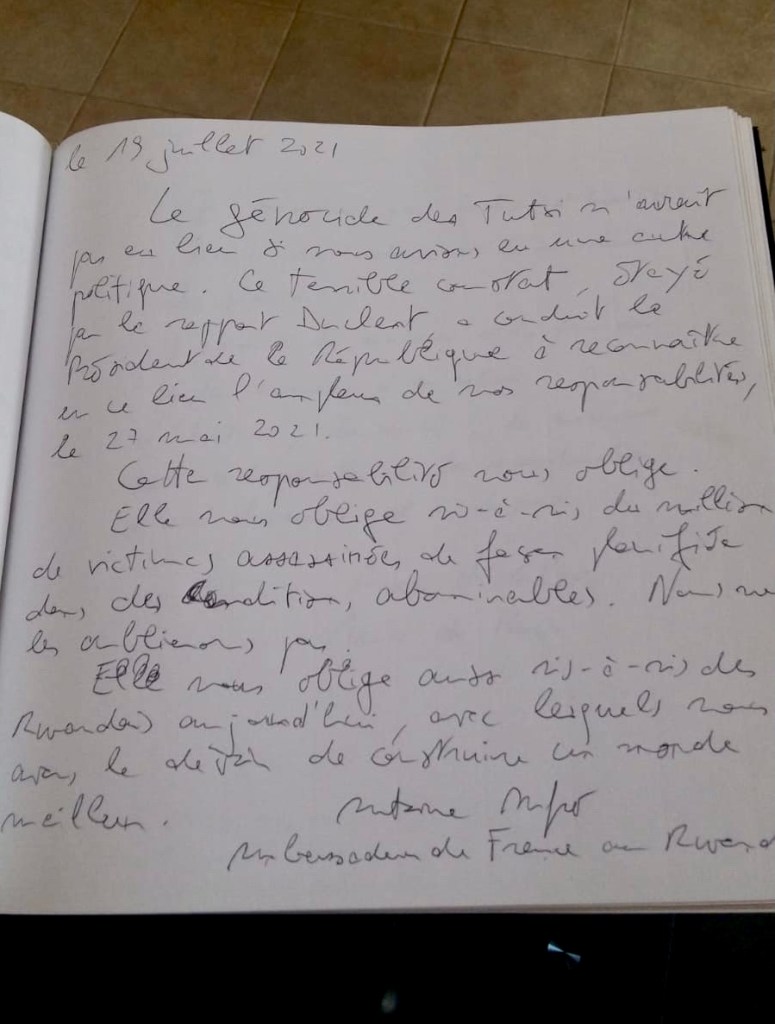 le 19 juillet 2021
Le génocide des Tutsi n'aurait
pas eu lieu si nous avions eu une autre
politique. Ce terrible constat, étayé
par le rapport Duclert, a conduit le
Président de la République à reconnaître
en ce lieu l'ampleur de nos responsabilités,
le 27 mai 2021.
Cette responsabilité nous oblige.
Elle nous oblige vis-à-vis du million
de victimes assassinées de façon planifiée
dans des conditions abominables. Nous ne
les oublierons pas.
Elle nous oblige aussi vis-à-vis des
Rwandais aujourd'hui, avec lesquels nous
avons le devoir de construire un monde
meilleur.
Antoine Anfré
Ambassadeur de France au Rwand